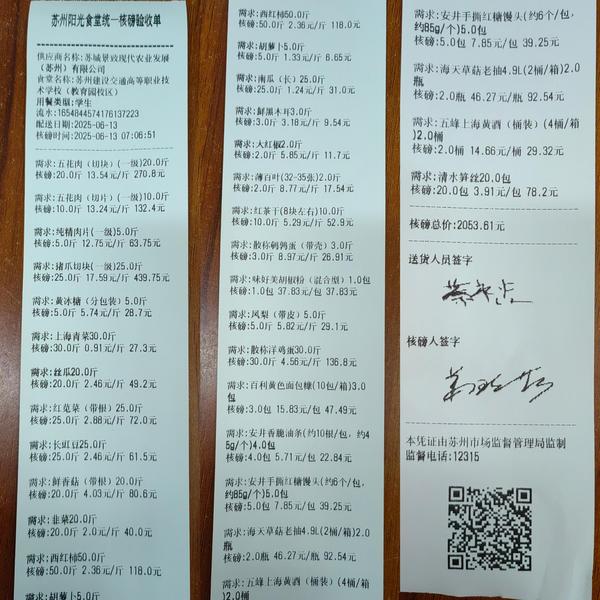 苏州阳光食堂统一核磅验收单
供应商名称:苏城景致现代农业发展
（苏州）有限公司
食堂名称:苏州建设交通高等职业技
术学校（教育园校区）
用餐类型:学生
流水:1654844574176137223
配送日期:2025-06-13
核磅时间:2025-06-13 07:06:51
需求:五花肉（切块）(一级)20.0斤
核磅:20.0斤 13.54元/斤 270.8元
需求:五花肉（切片）(一级)10.0斤
核磅:10.0斤 13.24元/斤 132.4元
需求:纯精肉片(一级)5.0斤
核磅:5.0斤 12.75元/斤 63.75元
需求:猪爪切块(一级)25.0斤
核磅:25.0斤 17.59元/斤 439.75元
需求:黄冰糖（分包装）5.0斤
核磅:5.0斤 5.74元/斤 28.7元
需求:上海青菜30.0斤
核磅:30.0斤 0.91元/斤 27.3元
需求:丝瓜20.0斤
核磅:20.0斤 2.46元/斤 49.2元
需求:红苋菜（带根）25.0斤
核磅:25.0斤 2.88元/斤 72.0元
需求:长豇豆25.0斤
核磅:25.0斤 2.46元/斤 61.5元
需求:鲜香菇（带根）20.0斤
核磅:20.0斤 4.03元/斤 80.6元
需求:韭菜20.0斤
核磅:20.0斤 2.0元/斤 40.0元
需求:西红柿50.0斤
核磅:50.0斤 2.36元/斤 118.0元
需求:胡萝卜5.0斤
需求:西红柿50.0斤
核磅:50.0斤 2.36元/斤 118.0元
需求:胡萝卜5.0斤
核磅:5.0斤 1.33元/斤 6.65元
需求:南瓜（长）25.0斤
核磅:25.0斤 1.24元/斤 31.0元
需求:鲜黑木耳3.0斤
核磅:3.0斤 3.18元/斤 9.54元
需求:大红椒2.0斤
核磅:2.0斤 5.85元/斤 11.7元
需求:薄百叶(32-35张)2.0斤
核磅:2.0斤 8.77元/斤 17.54元
需求:红茶干(8块左右)10.0斤
核磅:10.0斤 5.29元/斤 52.9元
需求:散称鹌鹑蛋（带壳）3.0斤
核磅:3.0斤 8.97元/斤 26.91元
需求:味好美胡椒粉（混合型）1.0包
核磅:1.0包 37.83元/包 37.83元
需求:凤梨（带皮）5.0斤
核磅:5.0斤 5.82元/斤 29.1元
需求:散称洋鸡蛋30.0斤
核磅:30.0斤 4.56元/斤 136.8元
需求:百利黄色面包糠(10包/箱)3.0
包
核磅:3.0包 15.83元/包 47.49元
需求:安井香脆油条(约10根/包，约4
5g/个)4.0包
核磅:4.0包 5.71元/包 22.84元
需求:安井手撕红糖馒头(约6个/包，
约85g/个)5.0包
核磅:5.0包 7.85元/包 39.25元
需求:海天草菇老抽4.9L(2桶/箱)2.0
瓶
核磅:2.0瓶 46.27元/瓶 92.54元
需求:五峰上海黄酒（桶装）(4桶/箱
)2.0桶
需求:安井手撕红糖馒头(约6个/包，
约85g/个)5.0包
核磅:5.0包 7.85元/包 39.25元
需求:海天草菇老抽4.9L(2桶/箱)2.0
瓶
核磅:2.0瓶 46.27元/瓶 92.54元
需求:五峰上海黄酒（桶装）(4桶/箱
)2.0桶
核磅:2.0桶 14.66元/桶 29.32元
需求:清水笋丝20.0包
核磅:20.0包 3.91元/包 78.2元
核磅总价:2053.61元
送货人员签字
核磅人签字
本凭证由苏州市场监督管理局监制
监督电话:12315